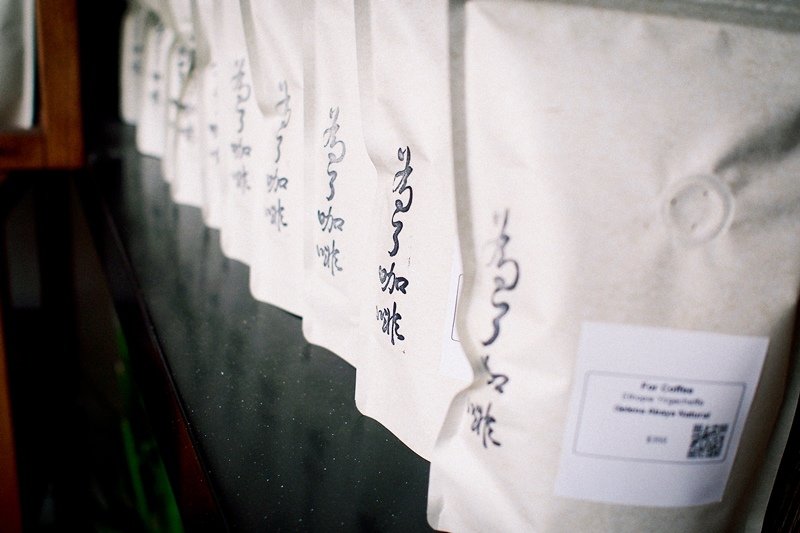 為了咖啡
為了咖啡
為了咖啡
為了咖啡
為了咖啡
為了咖啡
For Coffee
Ethiopia Yirgacheffe
Natural